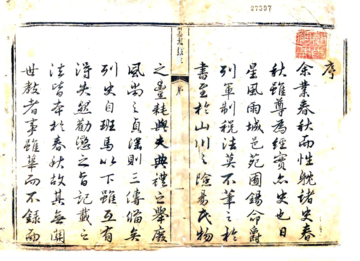 27597
序
余業春秋而性躭諸史春
秋雖尊為經實亦史也日
星風雨城邑苑囿錫命爵
列軍制稅法莫不筆之於
書至於山川之險易民物
之豐耗與夫典禮之舉廢
風尚之貞淫則三傳備矣
列史自班馬以下雖互有
得失然勸懲之旨記載之
法皆本於春秋故其無關
世教者事雖華而不錄而
序